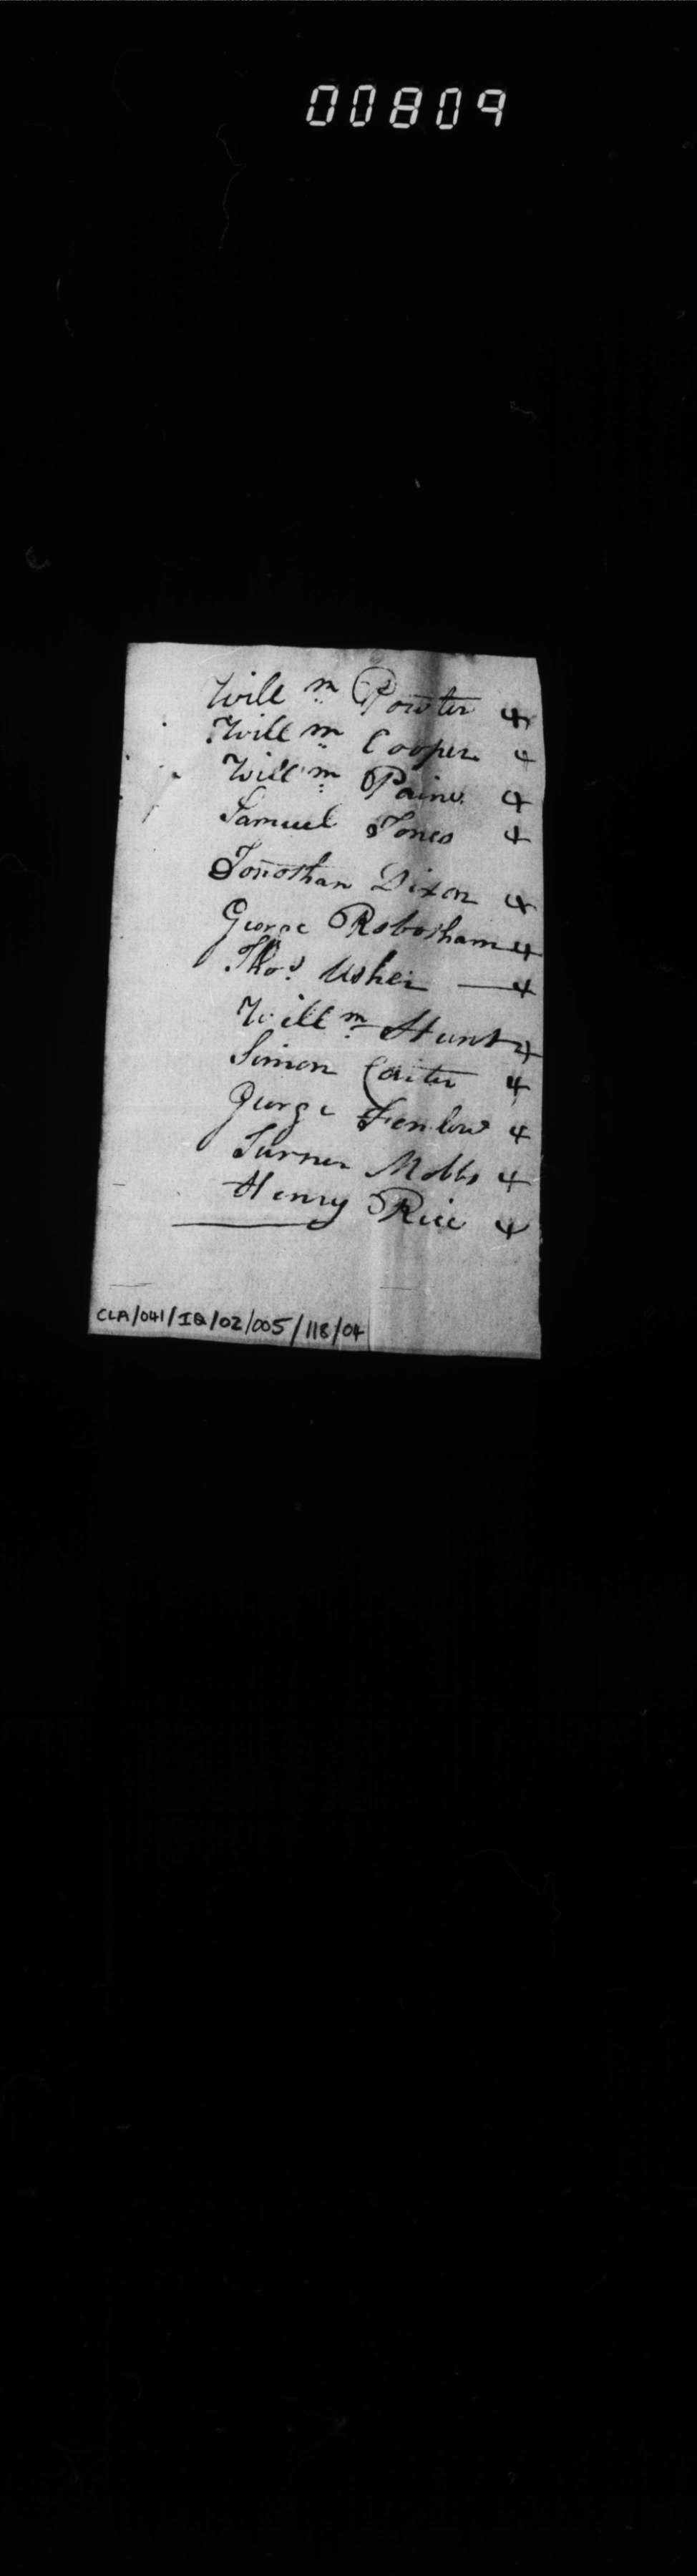 00809
Will.m Powter 4
Will.m Cooper 4
Will.m Paine 4
Samuel Jones 4
Jonothan Dixon 4
George Robotham 4
Tho.s Usher — 4
Will.m Hunt 4
Simon Carter 4
George Fenlow 4
Turner Mobbs 4
Henry Rice 4
CLA/041/IQ/02/005/118/04